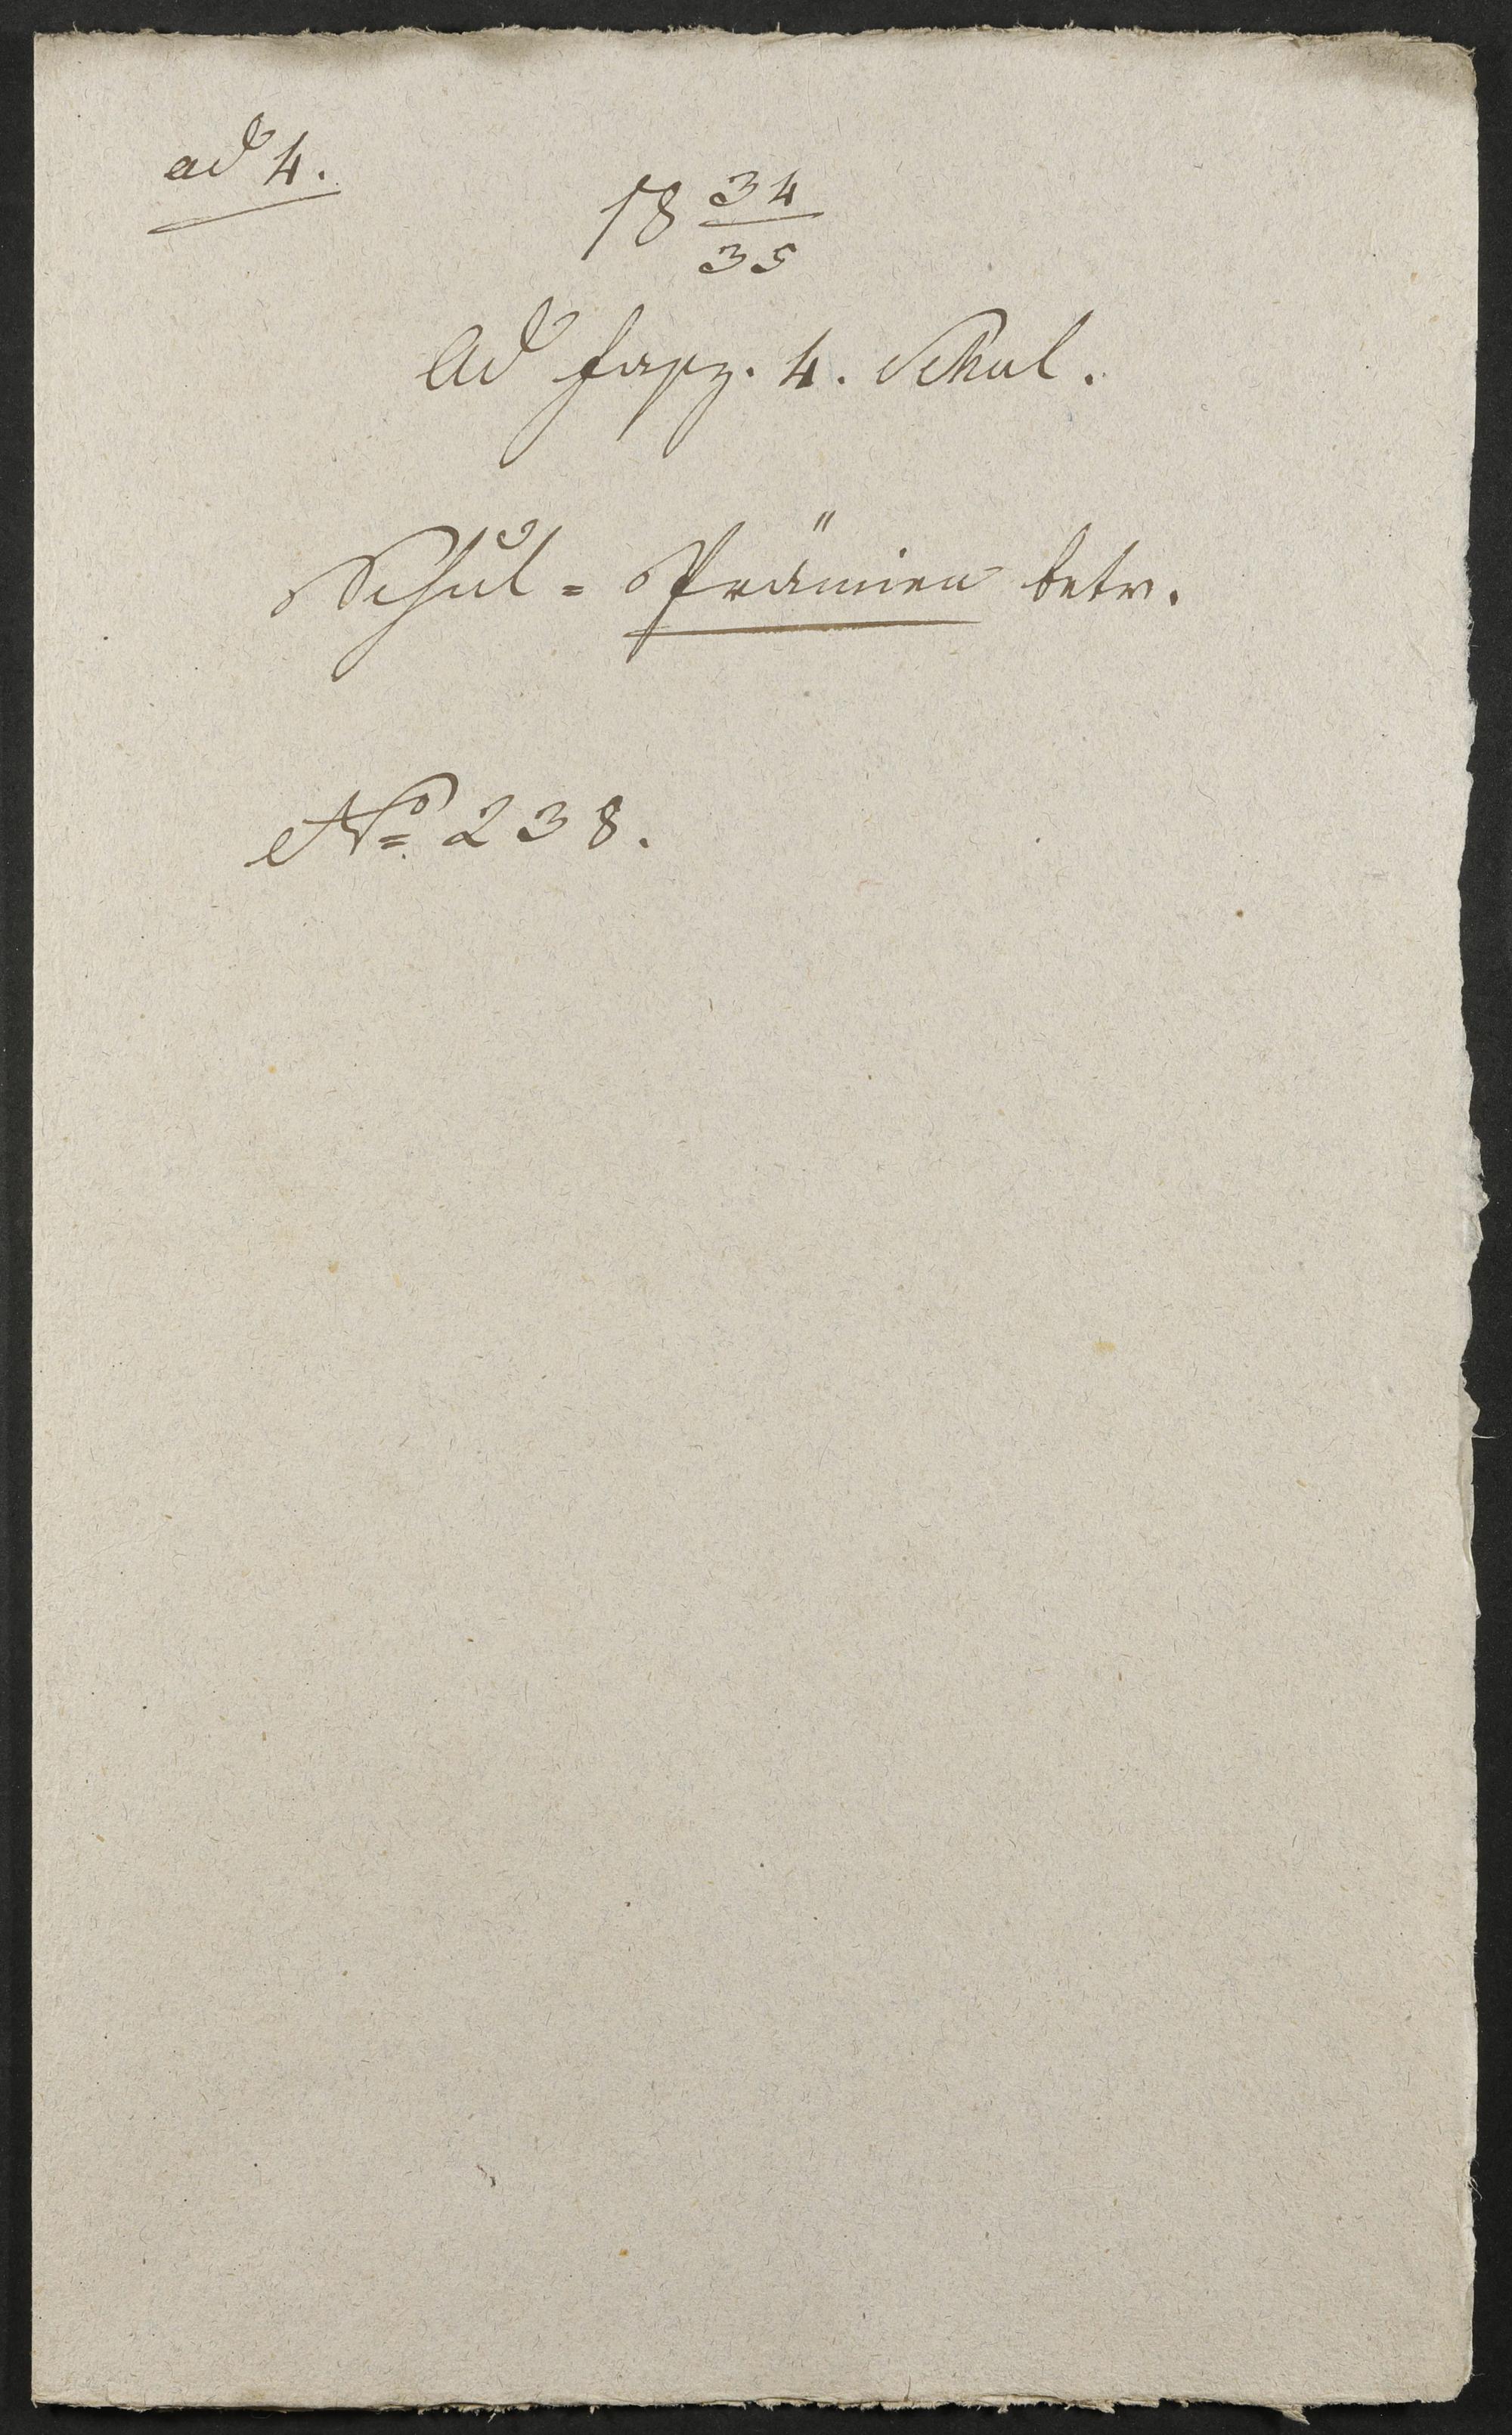 ad 4.
18 34/35
Ad fasz. 4. Schul.
Schul = Prämien betr.
No 238.